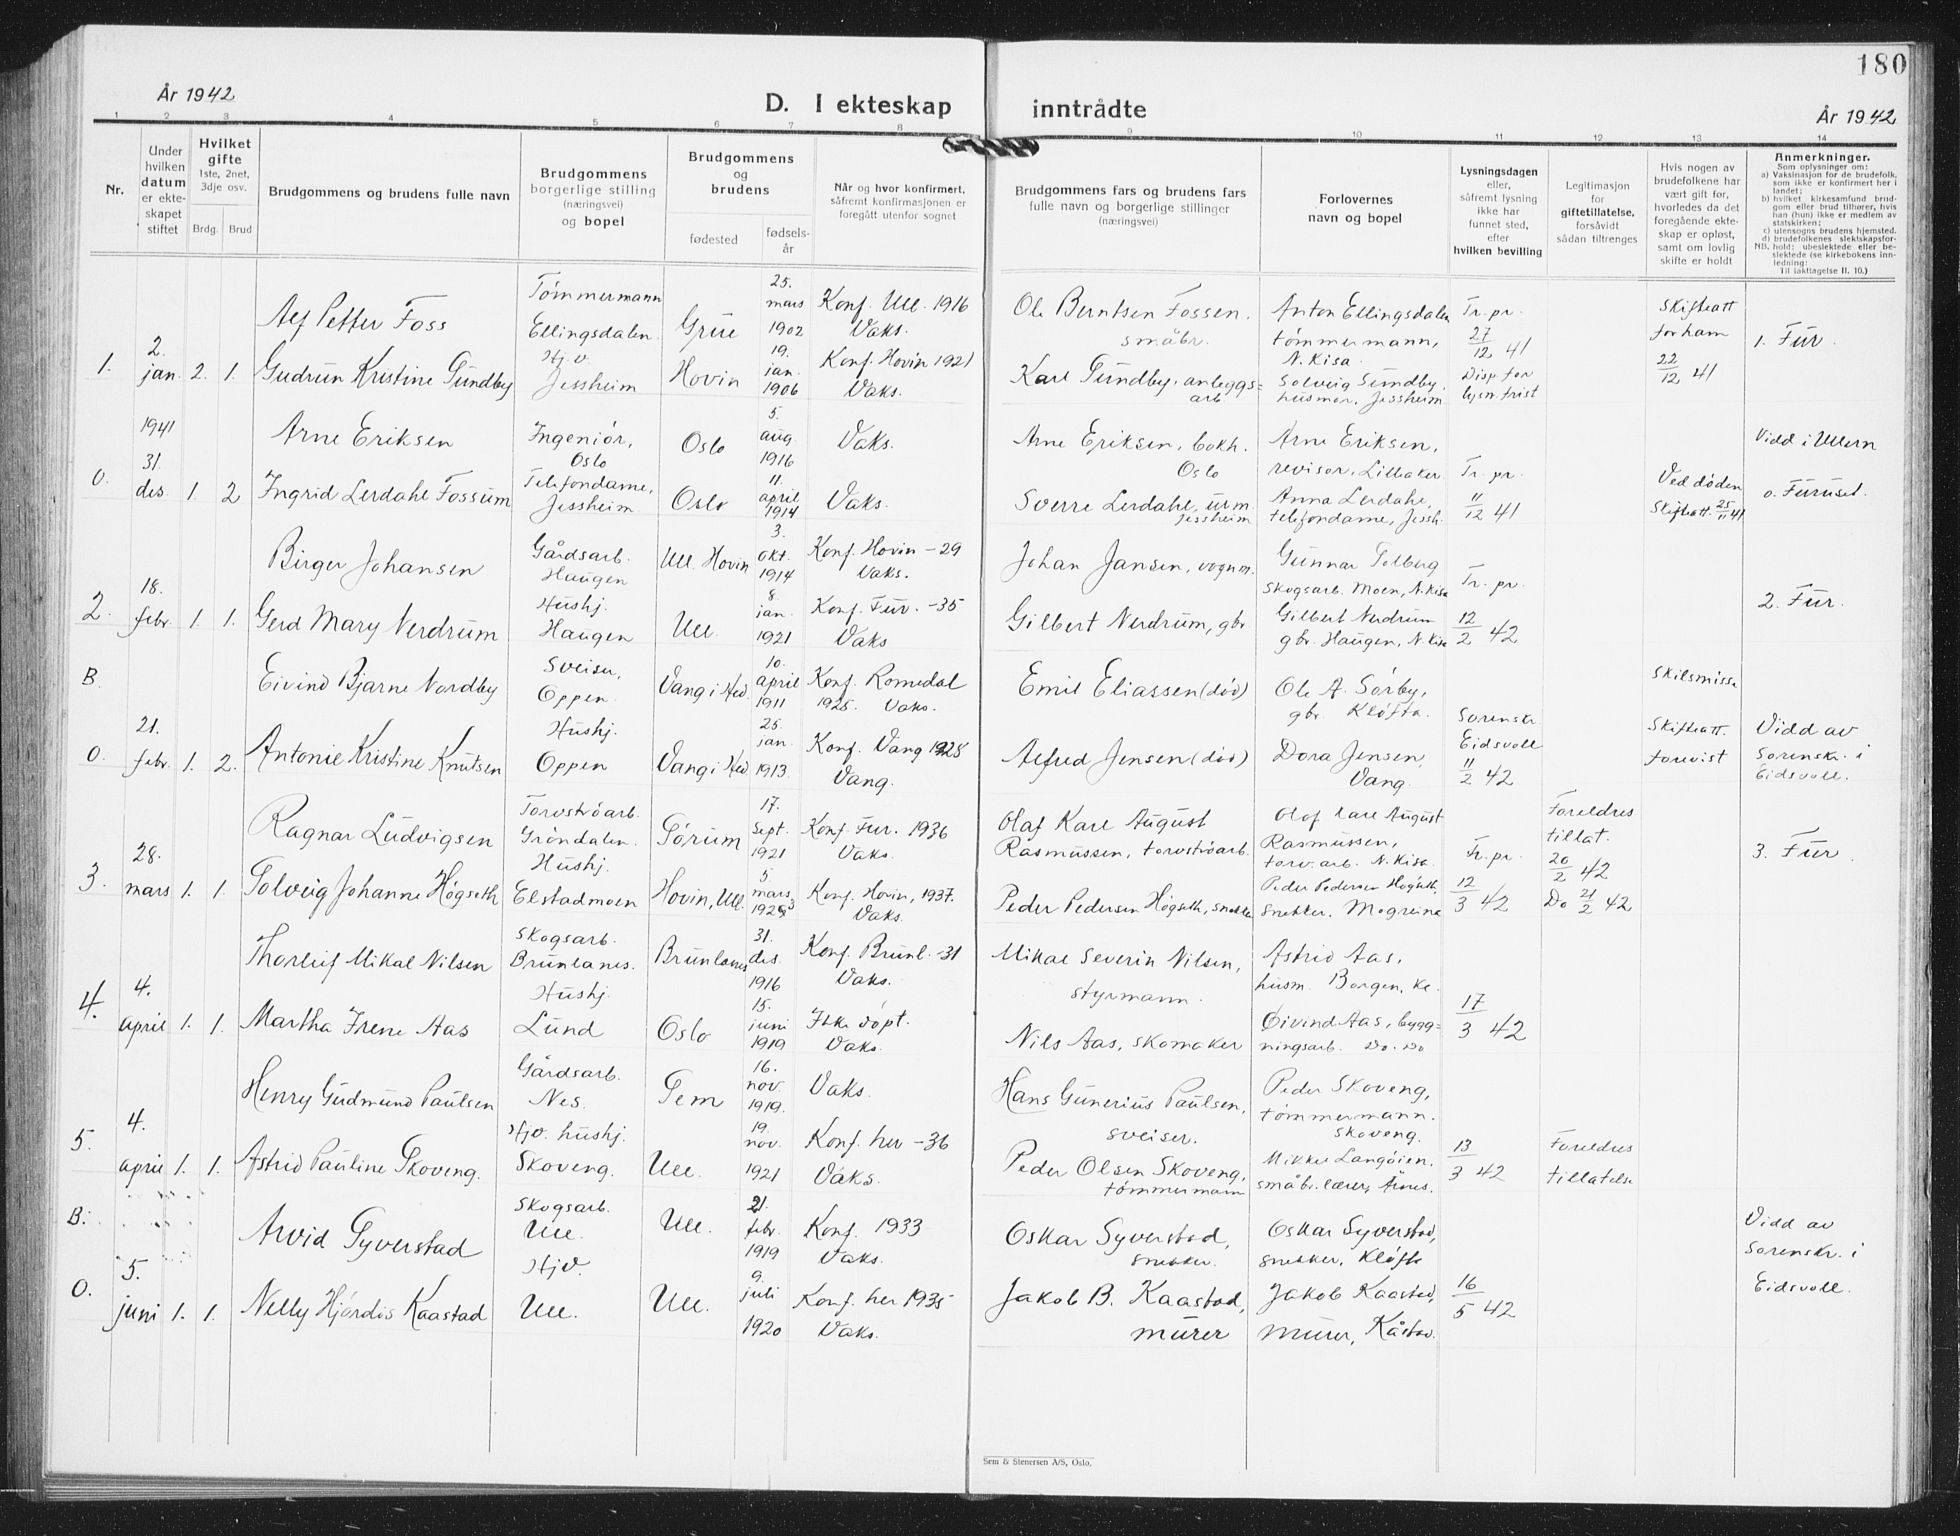 180
År 1942
D. I ekteskap inntrådte
År 1942
1 2 3 4 5 6 7 8 9 10 11 12 13 14
Nr.
Under hvilken datum er ekteskapet stiftet
Hvilket gifte 1ste, 2net, 3dje osv.
Brdg. Brud
Brudgommens og brudens fulle navn
Brudgommens borgerlige stilling (næringsvei) og bopel
Brudgommens og brudens
fødested
fødselsår
Når og hvor konfirmert, såfremt konfirmasjonen er foregått utenfor sognet
Brudgommens fars og brudens fars fulle navn og borgerlige stillinger (næringsvei)
Forlovernes navn og bopel
Lysningsdagen eller, såfremt lysning ikke har funnet sted, efter hvilken bevilling
Legitimasjon for giftetillatelse, forsåvidt sådan tiltrenges
Hvis nogen av brudefolkene har vært gift før, hvorledes da det foregående ekteskap er opløst, samt om lovlig skifte er holdt
Anmerkninger.
Som oplysninger om:
a) Vaksinasjon for de brudefolk, som ikke er konfirmert her i landet;
b) hvilket kirkesamfund brudgom eller brud tilhører, hvis han (hun) ikke er medlem av statskirken;
c) utensogns brudens hjemsted.
d) brudefolkenes slektskapsforhold: ubeslektede eller beslektede (se kirkebokens innledning:
NB.
Til iakttagelse II. 10.)
1. 2. jan. 2. 1.
Alf Petter Foss
Tømmermann Ellingsdalen.
Grue
25. mars 1902
Konf. Ull. 1916 Vaks.
Ole Berntsen Fossen. småbr.
Anton Ellingsdalen tømmermann, N. Kisa.
Tr. pr. 27/12 41
Skifteatt for ham 22/12 41
1. Fur.
Gudrun Kristine Sundby
Hj.v. Jessheim
Hovin
19. jan. 1906
Konf. Hovin 1921 Vaks.
Karl Sundby, anleggsarb
Solveig Sundby. husmor, Jessheim
Disp for lysn. frist
O. 1941 31. des. 1. 2
Arne Eriksen
Ingeniør, Oslo
Oslo
5. aug. 1916
Vaks.
Arne Eriksen, bokh. Oslo
Arne Eriksen, revisor, Lilleaker
Tr. pr. 11/12 41
Ved døden Skifteatt. 25/11 41
Vidd i Ullern
o. Furuset.
Ingrid Lerdahl Fossum
Telefondame, Jessheim
Oslo
11. april 1914
Vaks.
Sverre Lerdahl, urm. Jessheim
Anna Lerdahl, telefondame, Jessh.
2. 18. febr. 1. 1.
Birger Johansen
Gårdsarb. Haugen
Ull. Hovin
3. okt. 1914
Konf. Hovin -29 Vaks.
Johan Jansen, vognm.
Gunnar Solberg Skogsarb. Moen, N. Kisa
Tr. pr. 12/2 42
2. Fur.
Gerd Mary Nerdrum
Hushj. Haugen
Ull.
8. jan. 1921
Konf. Fur. -35 Vaks
Gilbert Nerdrum, gbr.
Gilbert Nerdrum gbr. Haugen, N. Kisa
B.
O. 21. febr. 1. 2.
Eivind Bjarne Nordby
Sveiser, Oppen.
Vang i Hed.
10. april 1911
Konf. Romedal 1925. Vaks.
Emil Eliassen (død)
Ole A. Sørby, gbr. Kløfta.
Sorenskr. Eidsvoll 11/2 42
Skilsmisse
Skifteatt. forevist
Vidd av Sorenskr. i Eidsvoll.
Antonie Kristine Knutsen
Hushj. Oppen
Vang i Hed
25. jan. 1913.
Konf. Vang 1928 Vang.
Alfred Jensen (død)
Dora Jensen, Vang.
3. 28. mars 1. 1.
Ragnar Ludvigsen
Torvstrøarb. Grøndalen.
Sørum
17. Sept. 1921
Konf. Fur. 1936 Vaks.
Olaf Karl August Rasmussen, torvstrøarb.
Olof Karl August Rasmussen, torv.arb. N. Kisa.
Tr. pr. 12/3 42
Foreldres tillat. 20/2 42
3. Fur.
Solveig Johanne Høgseth
Hushj. Elstadmoen
Hovin, Ull.
5. mars
Konf. Hovin, 1937. Vaks.
Peder Pedersen Høgseth, snekker
Peder Pedersen Høgseth, snekker. Mogreina
Do 21/2 42
4. 4. april 1. 1.
Thorleif Mikal Nilsen
Skogsarb. Brunlanes.
Brunlanes
31. des. 1916
Konf. Brunl. -31 Vaks.
Mikal Severin Nilsen, styrmann.
Astrid Aas, husm. Borgen, Kl.
17/3 42
Martha Irene Aas
Hushj. Lund
Oslo
15. juni 1919
Ikke døpt. Vaks.
Nils Aas, skomaker
Øivind Aas, byggningsarb. Do. Do
5. 4. april 1. 1.
Henry Gudmund Paulsen
Gårdsarb. Nes.
Sem
16. nov. 1919.
Vaks.
Hans Gunerius Paulsen, sveiser.
Peder Skoveng, tømmermann. Skoveng.
13/3 42
Foreldres tillatelse
Astrid Pauline Skoveng.
Hjv. hushj. Skoveng.
Ull.
19. nov. 1921
Konf. her -36 Vaks.
Peder Olsen Skoveng, tømmermann
Mikkel Langøien. småbr. lærer, Årnes.
B.
O. 5. juni 1. 1.
Arvid Syverstad
Skogsarb. Ull.
Ull.
21 febr. 1919
Konf. 1933 Vaks.
Oskar Syverstad, snekker.
Oskar Syverstad, snekker, Kløfta
16/5 42
Vidd av Sorenskr. i Eidsvoll.
Nelly Hjørdis Kaastad
Hjv. Ull.
Ull.
9. juli 1920
Konf. her 1935 Vaks.
Jakob B. Kaastad, murer
Jakob Kaastad, murer, Kåstad.
Sem & Stenersen A/S, Oslo.